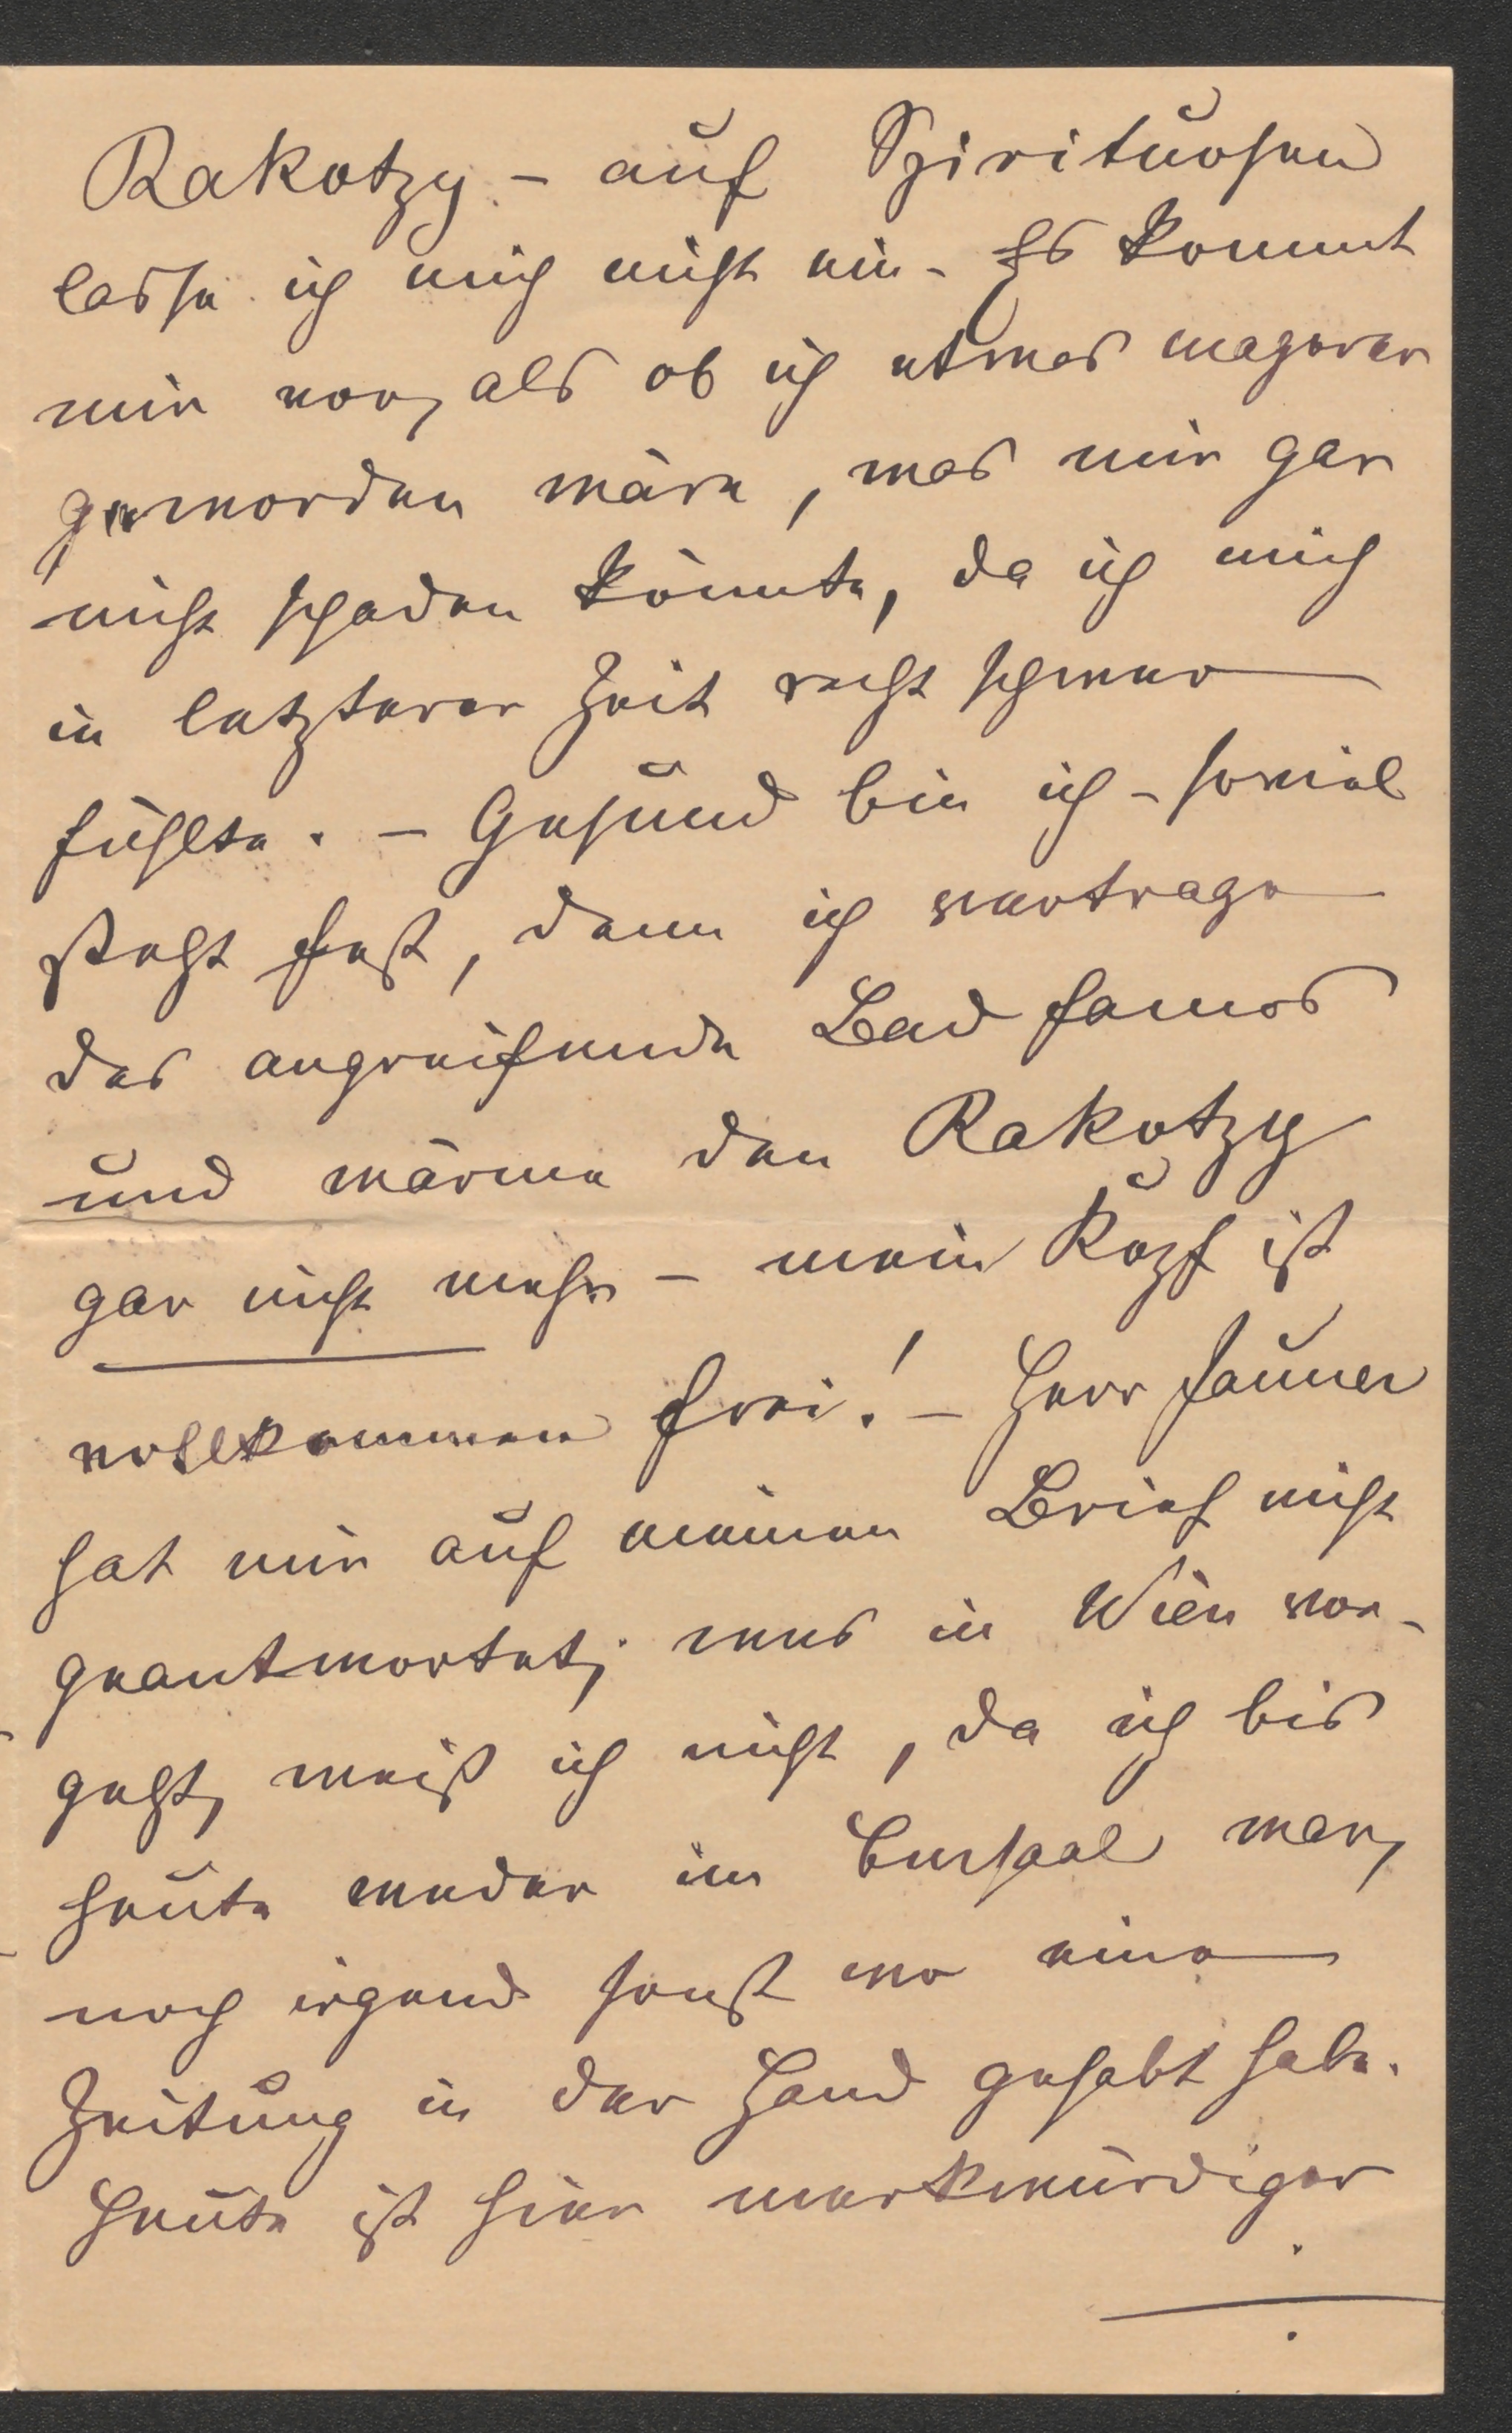 Rakotzy - auf Spirituosen
lasse ich mich nicht ein - Es kommt
mir vor, als ob ich etwas magerer
geworden wäre, was mir gar
nicht schaden könnte, da ich mich
in letzterer Zeit recht schwer
fühlte. - Gesund bin ich - soviel
steht fest, denn ich vertrage
das angreifende Bad famos
und wärme den Rakotzy
gar nicht mehr - mein Kopf ist
vollkommen frei! - Herr Jauner
hat mir auf meinen Brief nicht
geantwortet; was in Wien vor-
geht, weiß ich nicht, da ich bis
heute weder im Cursaal war,
noch irgend sonst wo eine
Zeitung in der Hand gehabt habe.
Heute ist hier merkwürdiger